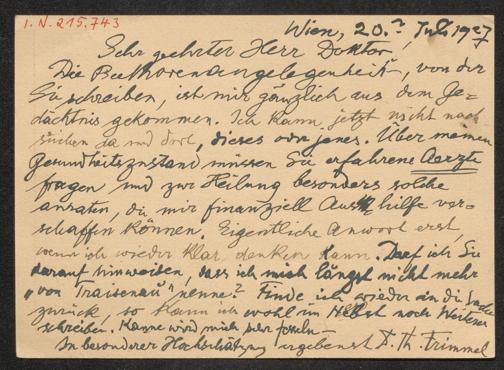 I. N. 215.743
Wien, 20. Juli 1927
Sehr geehrter Herr Doktor,
Die Beethovenangelegenheit, von der
Sie schreiben, ist mir gänzlich aus dem Ge-
dächtnis gekommen. Ich kann jetzt nicht nach
suchen da und dort, dieses oder jenes. Über meinen
Gesundheitszustand müssen Sie erfahrene Aerzte
fragen und zur Heilung besonders solche
anraten, die mir finanziell Aushilfe ver-
schaffen können. Eigentliche Anwort erst,
wenn ich wieder klar denken kann. Darf ich Sie
darauf hinweisen, dass ich mich längst nicht mehr
"von Traisenau" nenne? Finde ich wieder in die Sache
zurück, so kann ich wohl im Herbst noch Weiteres
schreiben. wird mich sehr
In besonderer Hochschätzung ergebenst D. Th. Frimmel